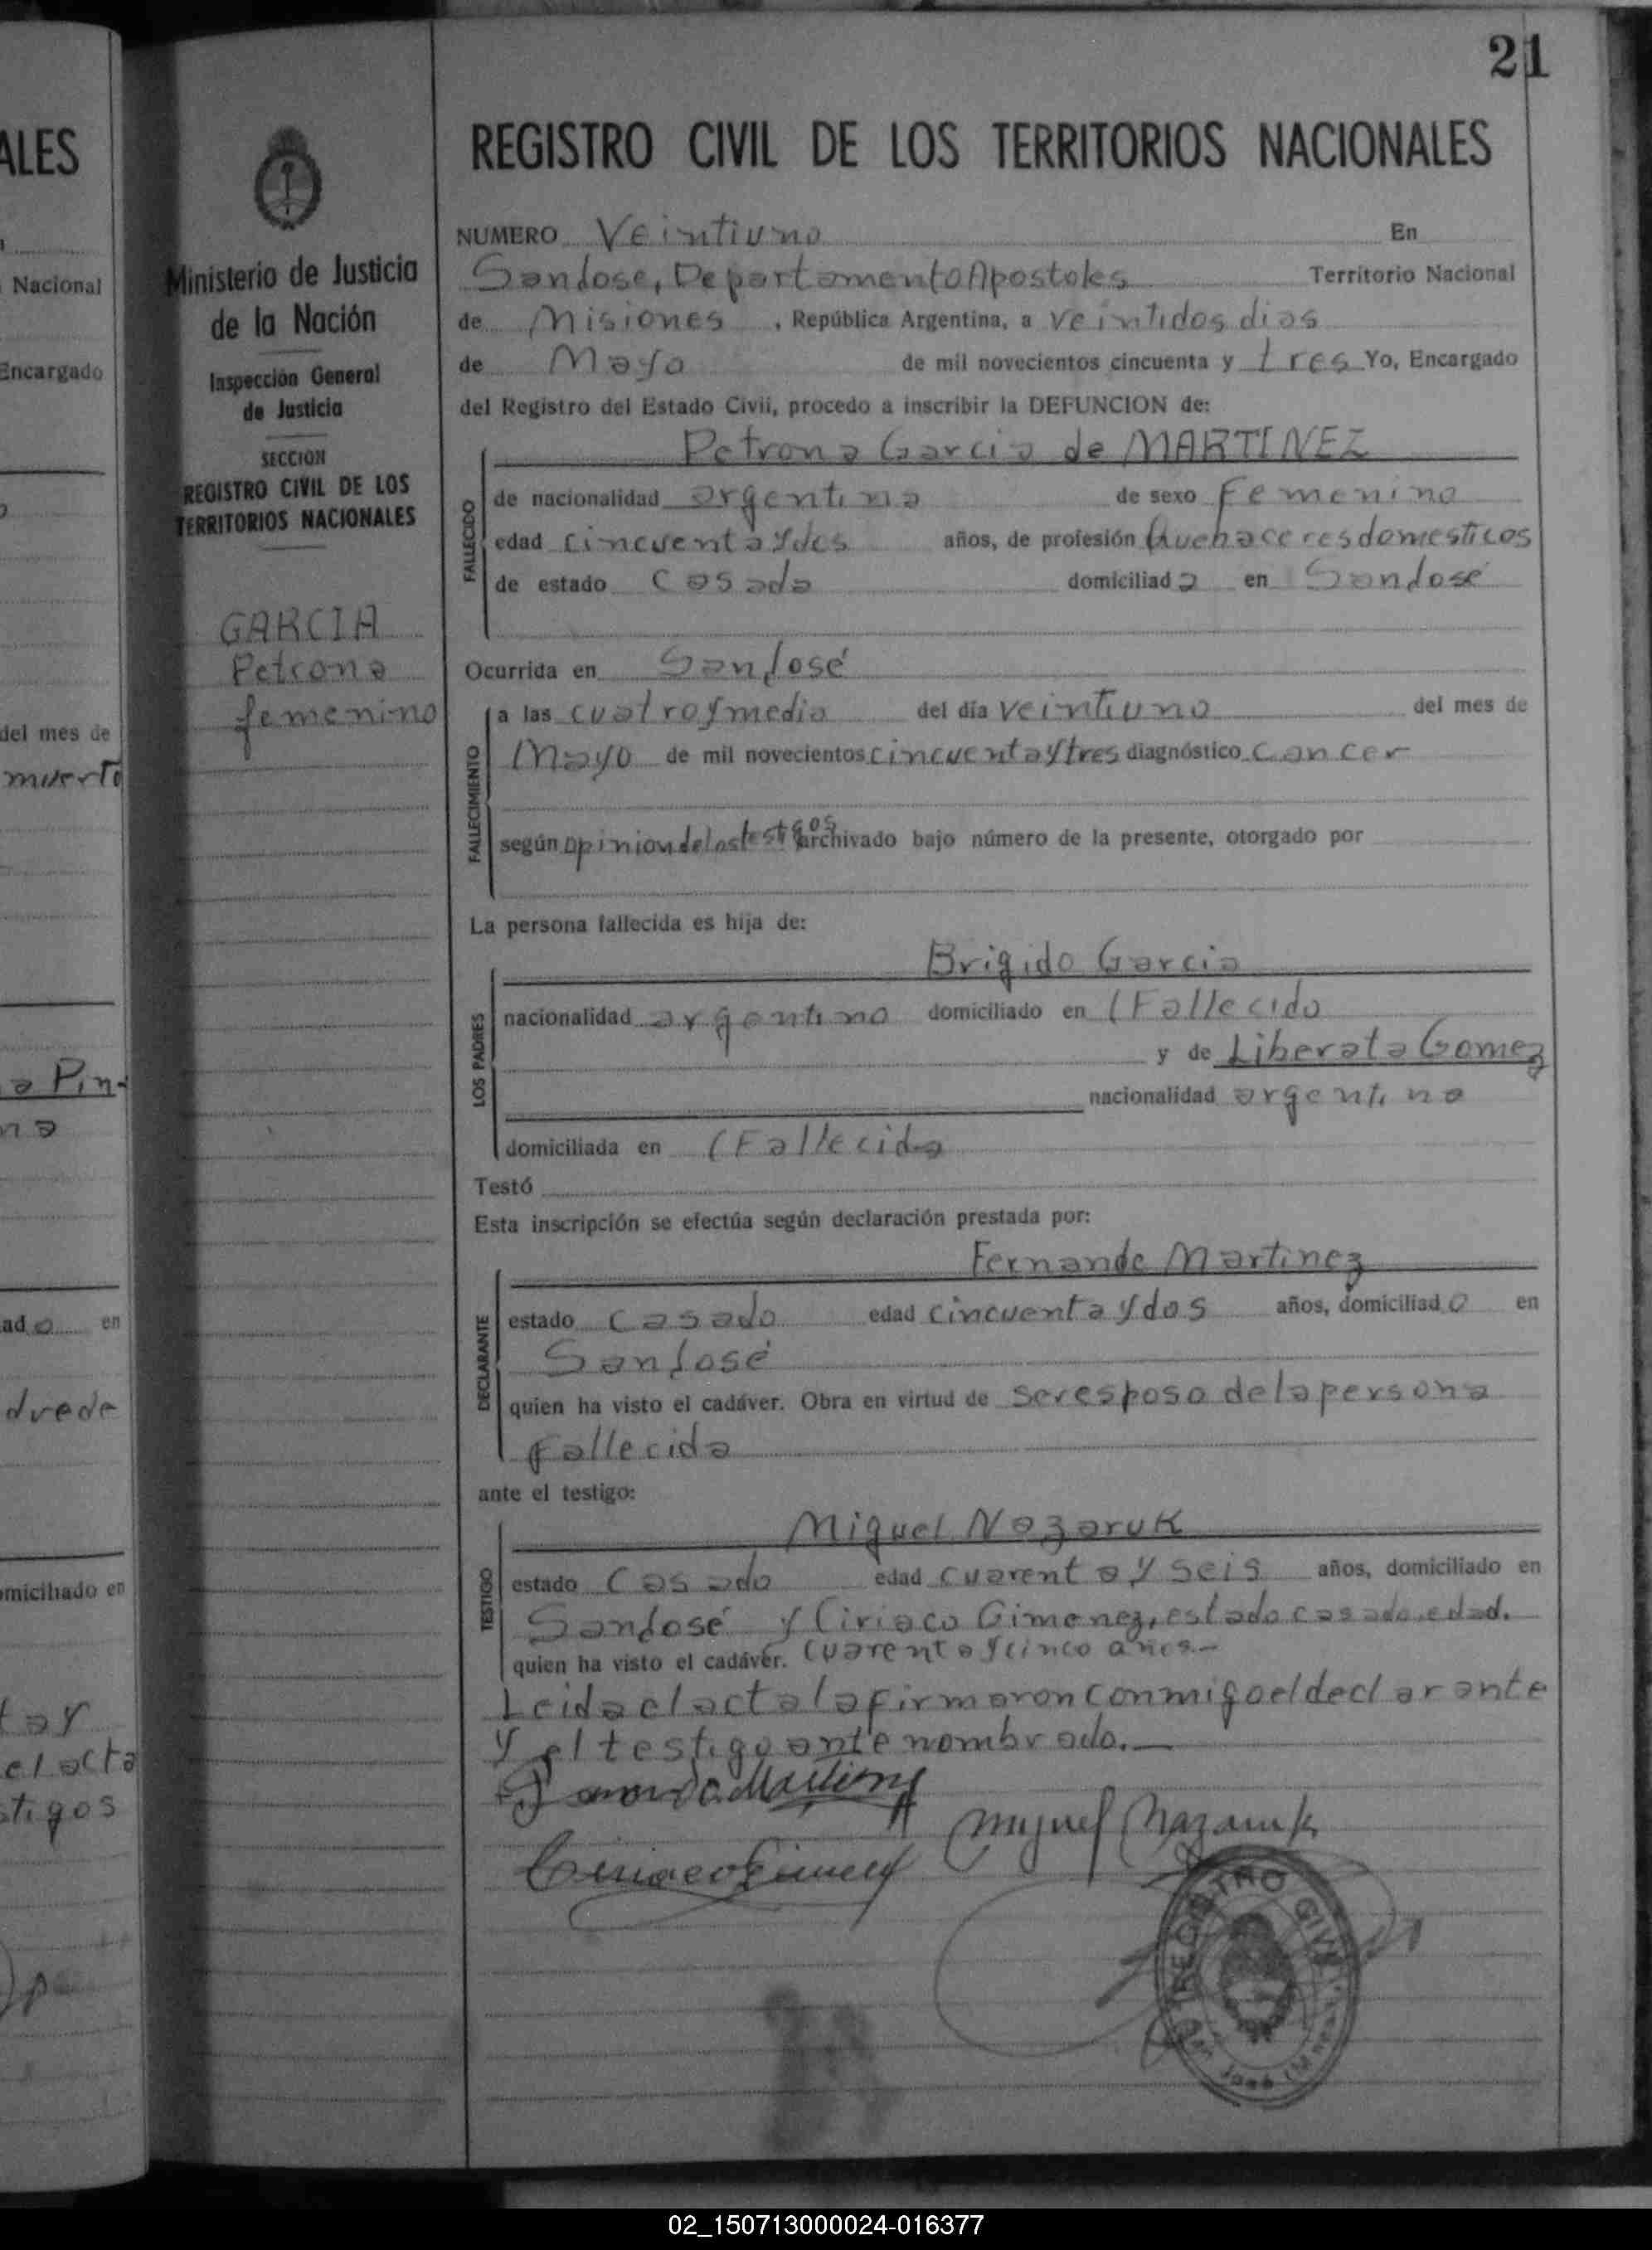 21
ALES
Nacional
Encargado
del mes de
muerto
a Pin-
na
ado en
drede
omiciliado en
tay
el acta
stigos
Ministerio de Justicia
de la Nación
Inspección General
de Justicia
SECCION
REGISTRO CIVIL DE LOS
TERRITORIOS NACIONALES
GARCIA
Petrona
femenino
REGISTRO CIVIL DE LOS TERRITORIOS NACIONALES
NUMERO Veintiuno En
San Jose, Departamento Apostoles Territorio Nacional
de Misiones, República Argentina, a veintidos dias
de Mayo de mil novecientos cincuenta y tres Yo, Encargado
del Registro del Estado Civil, procedo a inscribir la DEFUNCION de:
Petrona Garcia de MARTINEZ
FALLECIDO
de nacionalidad argentina de sexo Femenino
edad cincuenta y dos años, de profesión Quehaceres domesticos
de estado Casada domiciliada en San José
Ocurrida en San José
FALLECIMIENTO
a las cuatro y media del día veintiuno del mes de
Mayo de mil novecientos cincuenta y tres diagnóstico Cancer
según opinion de los testigos archivado bajo número de la presente, otorgado por
La persona fallecida es hija de:
Brigido Garcia
LOS PADRES
nacionalidad argentino domiciliado en (Fallecido
y de Liberata Gomez
nacionalidad argentina
domiciliada en (Fallecida
Testó
Esta inscripción se efectúa según declaración prestada por:
Fernando Martinez
DECLARANTE
estado Casado edad cincuenta y dos años, domiciliado en
San José
quien ha visto el cadáver. Obra en virtud de ser esposo de la persona
Fallecida
ante el testigo:
Miguel Nazaruk
TESTIGO
estado Casado edad cuarenta y seis años, domiciliado en
San José y Ciriaco Gimenez, estado casado, edad.
quien ha visto el cadáver. Cuarenta y cinco años.-
Leida el acta la firmaron conmigo el declarante
y el testigo ante nombrado.—
Fernando Martinez
Miguel Nazaruk
Ciriaco Gimenez
REGISTRO CIVIL
San José (Misiones)
02_150713000024-016377